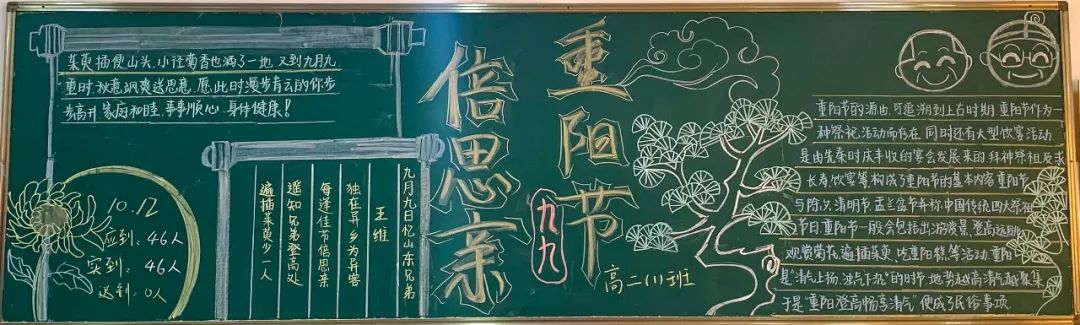 茱萸插便山头,小径菊香也满了一地,又到九月九
重时,秋意飒爽送思意,愿此时漫步青云的你步
步高升,家庭和睦,事事顺心,身体健康!
10.12
应到:46人
实到:46人
迟到:0人
九月九日忆山东兄弟
王维
独在异乡为异客
每逢佳节倍思亲
遥知兄弟登高处
遍插茱萸少一人
重阳节
倍思亲
九九
高二(1)班
重阳节的源由,可追溯到上古时期,重阳节作为一
种祭祀活动而存在,同时还有大型饮宴活动,
是由先秦时庆丰收的宴会发展来的,拜神祭祖及求
长寿,饮宴等,构成了重阳节的基本内容,重阳节
与除夕,清明节,盂兰盆节并称中国传统四大祭祖
节日,重阳节一般会包括出游赏景,登高远眺,
观赏菊花,遍插茱萸,吃重阳糕,等活动,重阳
是"清气上扬,浊气下沉"的时节,地势越高清气越聚集
于是"重阳登高畅享清气"便成了民俗事项